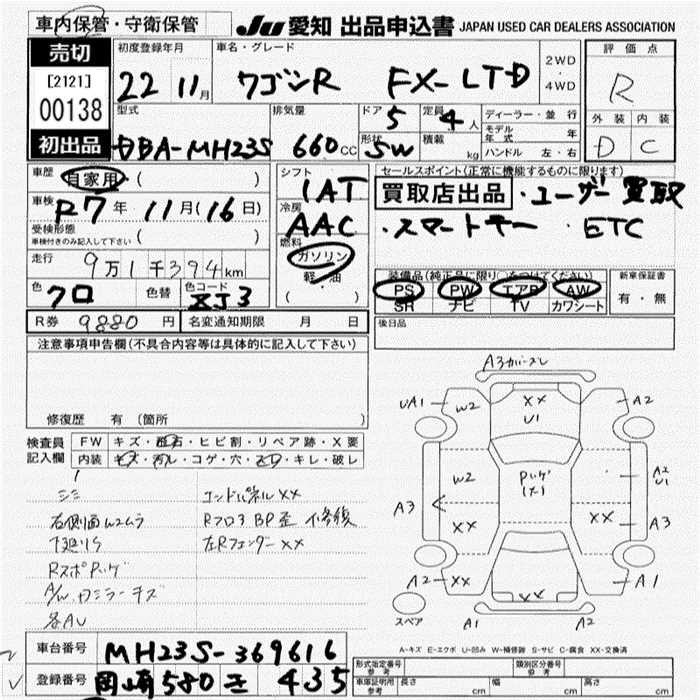 車内保管・守衛保管
JU 愛知 出品申込書 JAPAN USED CAR DEALERS ASSOCIATION
売切
[2121]
00138
初出品
初度登録年月
22 11月
車名・グレード
ワゴンR FX-LTD
2WD
・
4WD
評価点
R
外装 内装
D C
型式
DBA-MH23S
排気量
660cc
ドア 5
定員 4人
形状 SW
積載 kg
ディーラー・並行
モデル年式 年
ハンドル 左・右
車歴 自家用・( )
車検 R7年 11月(16日)
受検形態
車検付きのみ記入して下さい ( )
走行 9万1千394km
色 クロ 色替 色コード ZJ3
シフト
IAT
冷房
AAC
燃料
ガソリン
軽・油
( )
セールスポイント(正常に機能するものに限ります)
買取店出品 ・ユーザー買取
・スマートキー ・ETC
装備品(純正品に限り○をつけてください)
PS PW エアB AW
SR ナビ TV カワシート
新車保証書
有・無
R券 9880円 名変通知期限 月 日
後日品
注意事項申告欄(不具合内容等は具体的に記入して下さい)
修復歴 有(箇所 )
検査員
記入欄
FW キズ・飛石・ヒビ割・リペア跡・X要
内装 キズ・汚れ・コゲ・穴・スレ・キレ・破レ
シミ
右側面W2ムラ
下廻りS
A/W、ドミラーキズ
各AU
コンドルパネルXX
Rフロア BP歪 不修復
左RフェンダーXX
A3カバースレ
UA1 W2 XX U1 A2
W2 A2 U1
A3 XX XX A3
A2 XX XX A1
スペア A1 A2
A-キズ E-エクボ U-凹み W-補修跡 S-サビ C-腐食 XX-交換済
車台番号 MH23S-369616
登録番号 岡崎580 さ 435
形式指定番号 参考 類別区分番号 参考
車庫証明用 参考 長さ cm 幅 cm 高さ cm